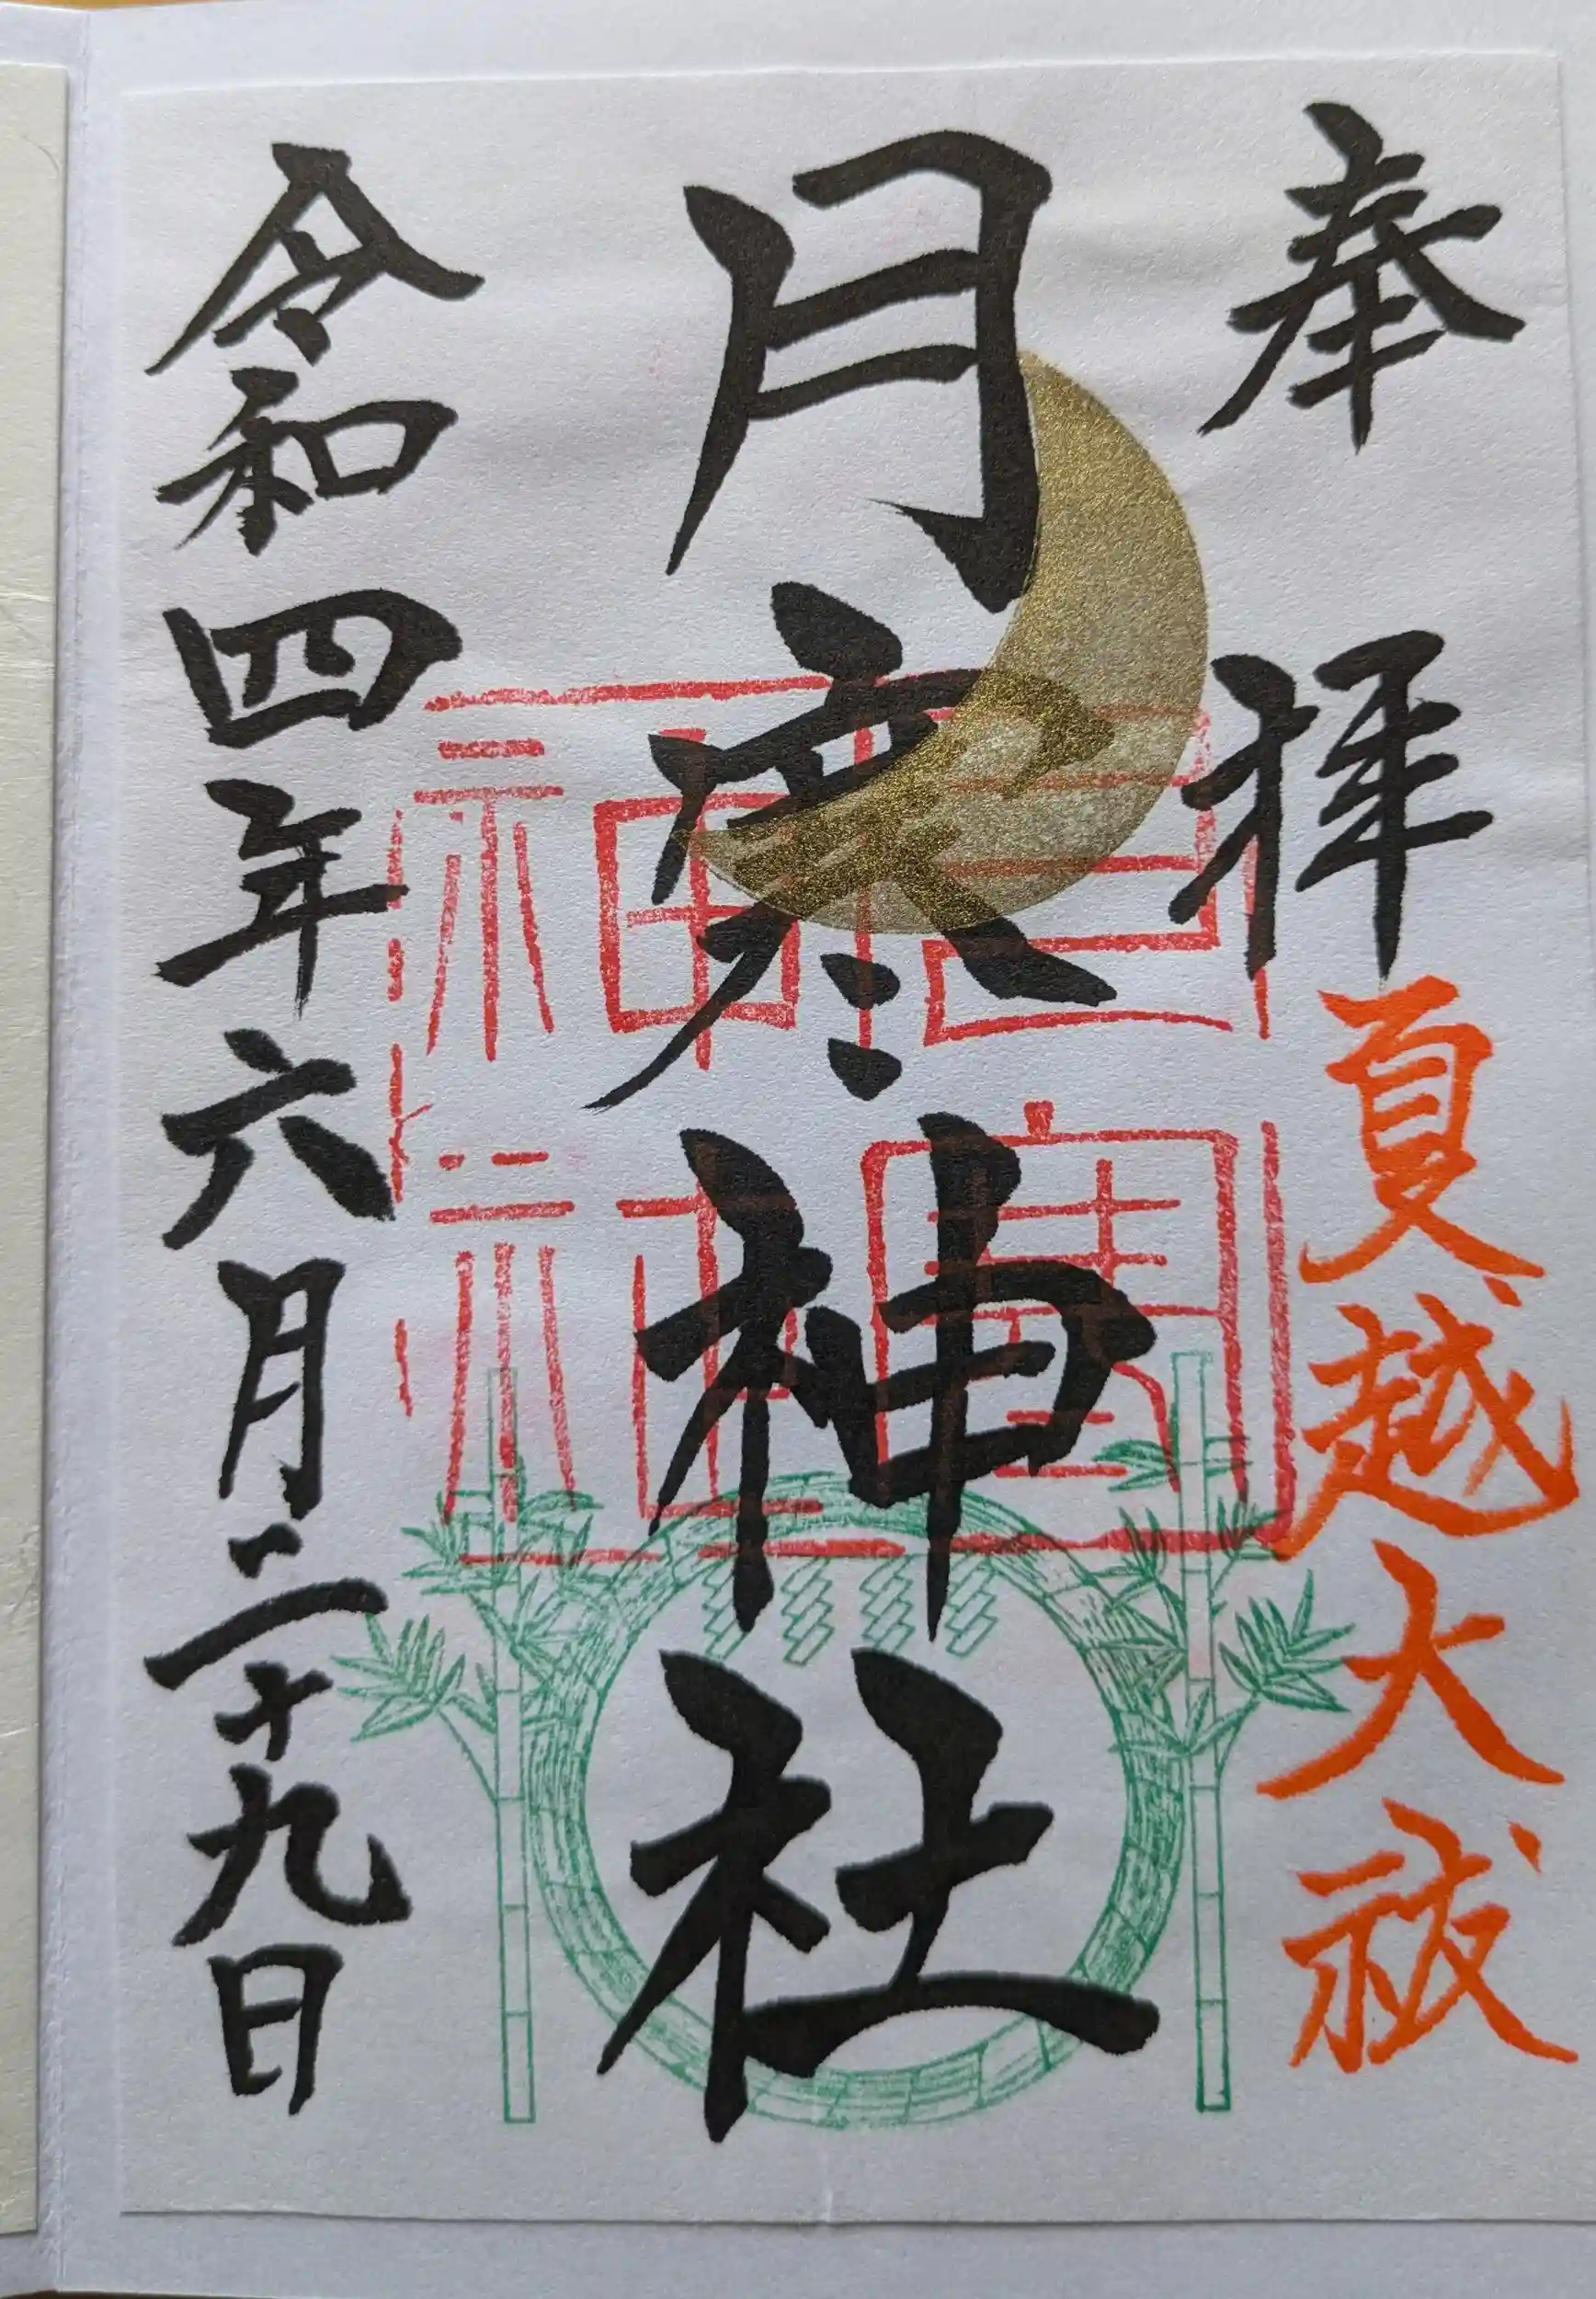 奉拝
夏越大祓
月寒神社
令和四年六月二十九日
月寒
神社